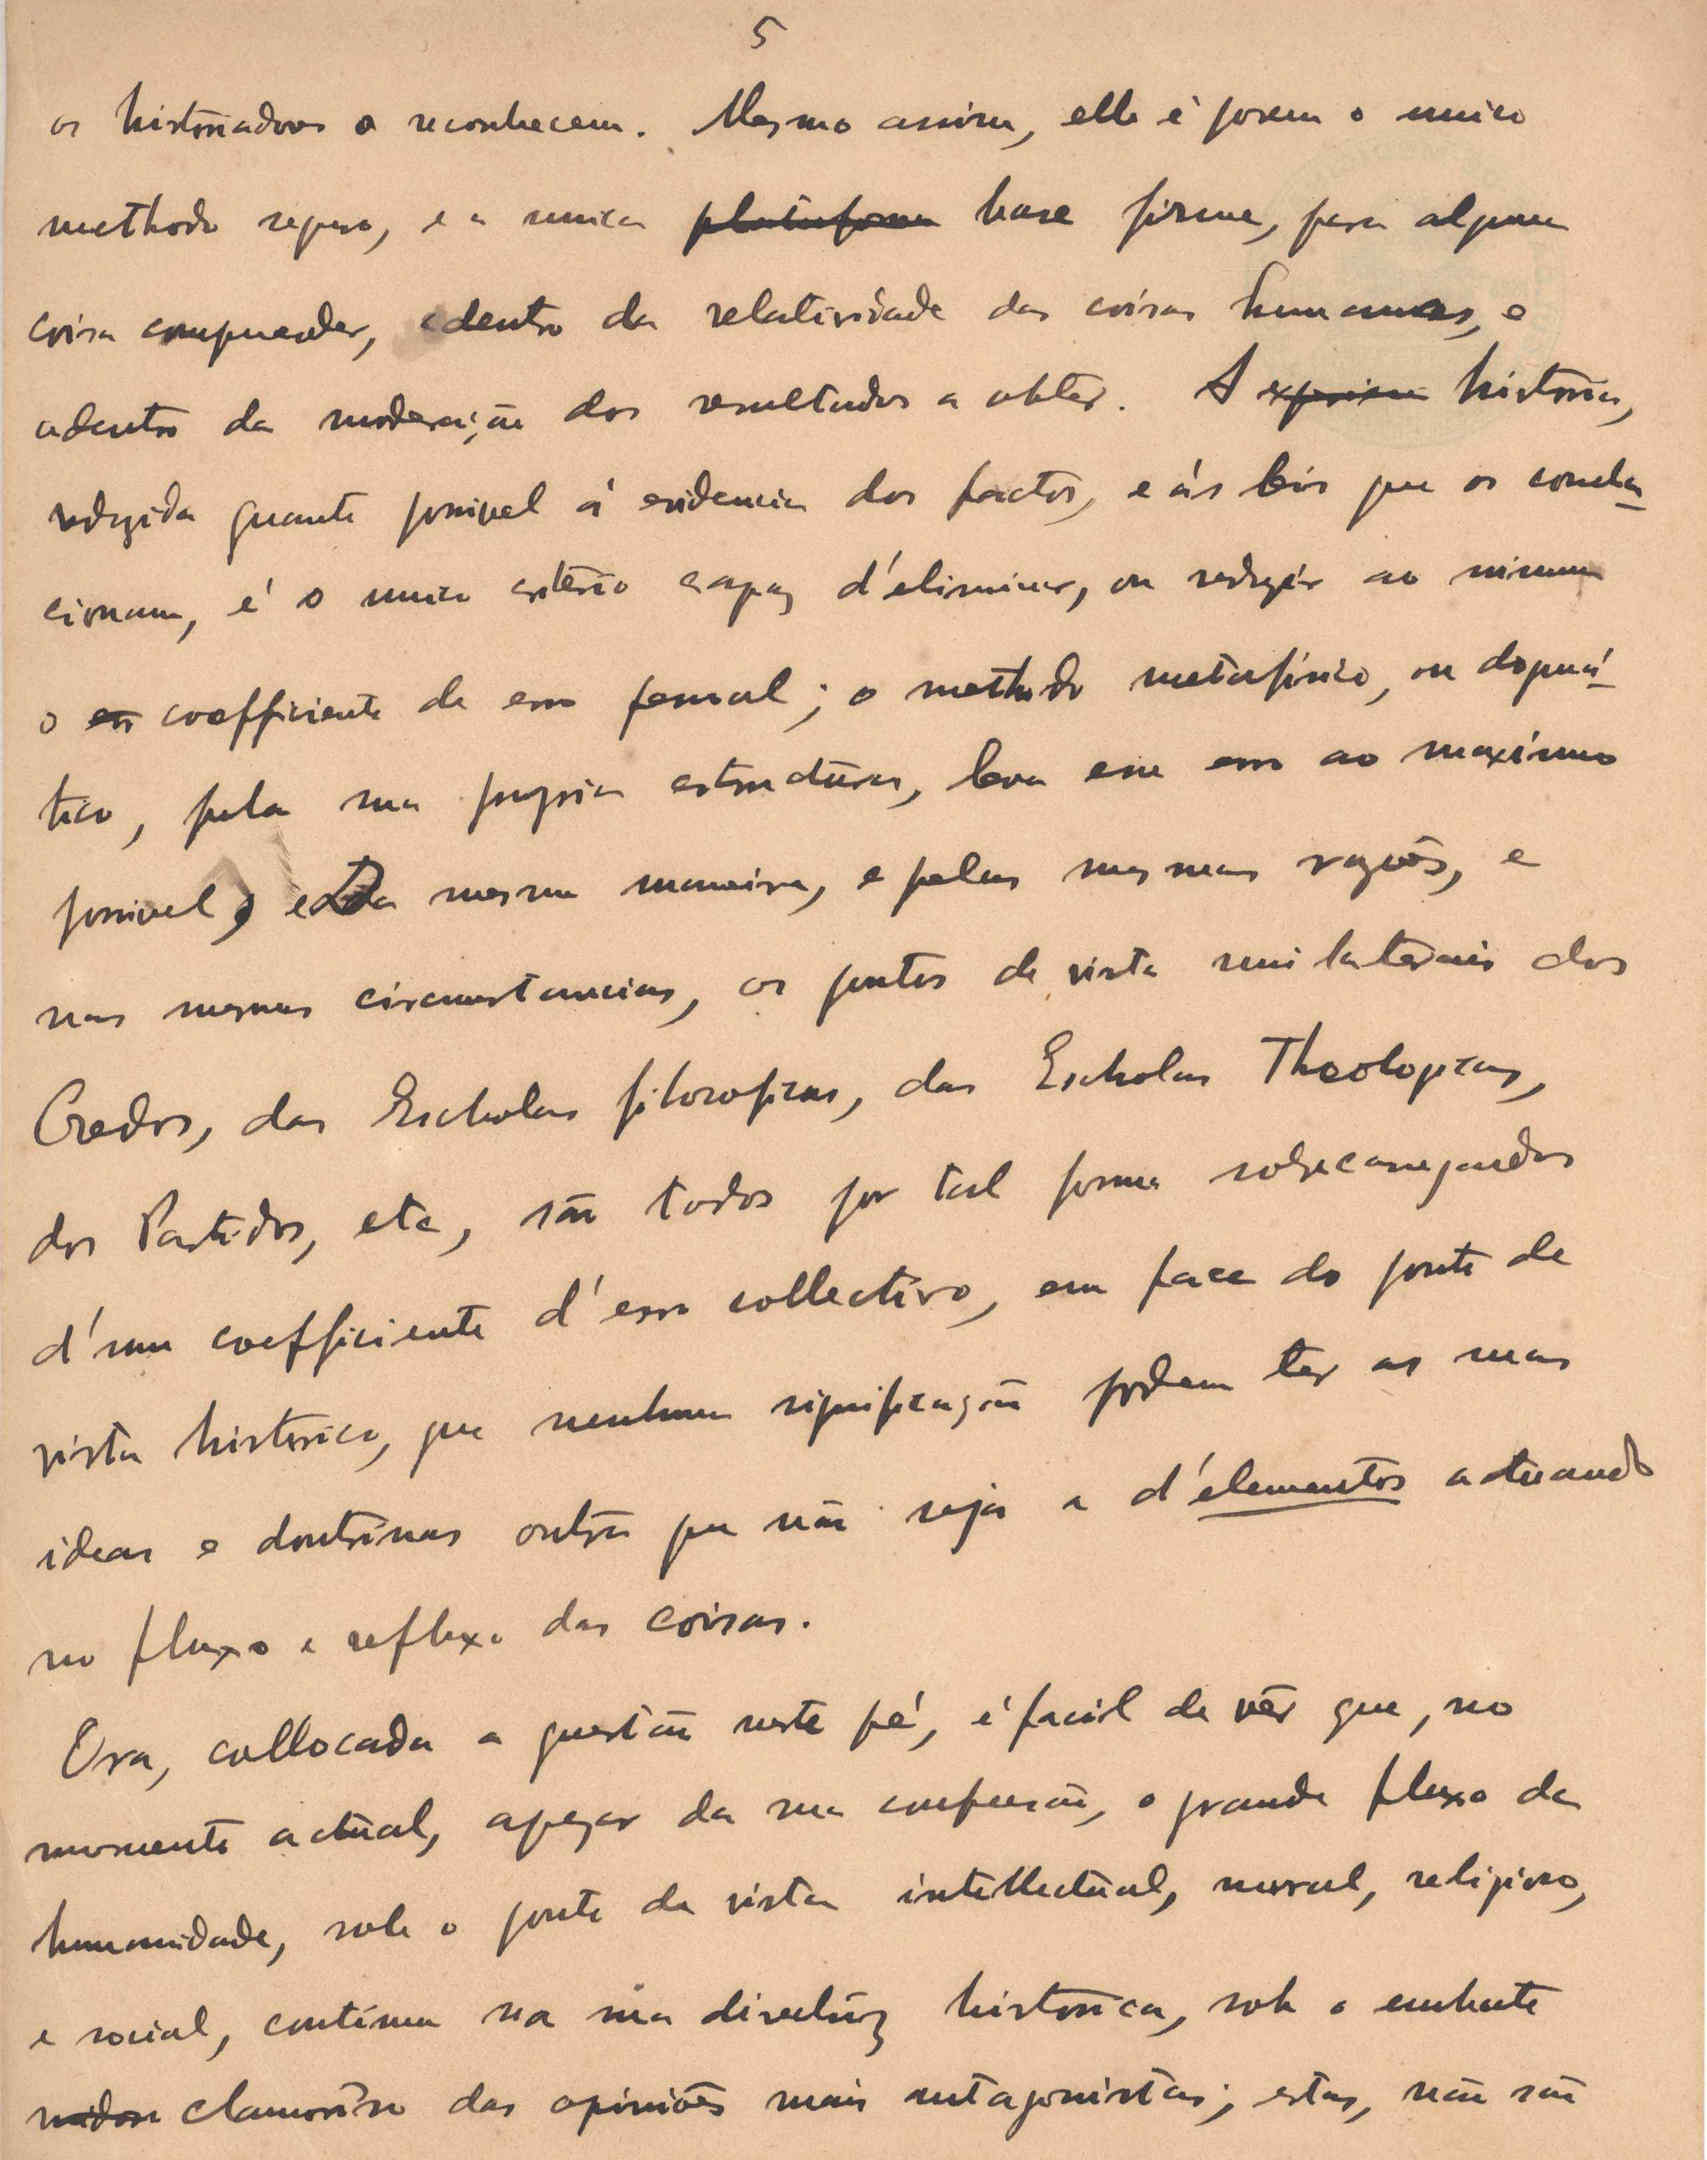 5
os historiadores o reconhecem. Mesmo assim, elle é porem o unico
methodo seguro, e a unica plataforma base firme, para alguma
coisa comprender, adentro da relatividade das coisas humanas, e
adentro da moderação dos resultados a obter. A historia,
reduzida quanto possivel á evidencia dos factos, e ás leis que os condi-
cionam, é o unico criterio capaz d'eliminar, ou reduzir ao minimo
o err coefficiente de erro pessoal; o methodo metafisico, ou dogmá-
tico, pela sua propria estructura, leva esse erro ao maximo
possivel, e Da mesma maneira, e pelas mesmas razões, e
nas mesmas circumstancias, os pontos de vista unilaterais dos
Credos, das Escholas filosoficas, das Escholas Theologicas,
dos Partidos, etc, são todos por tal forma sobrecarregados
d'um coefficiente d'erro collectivo, em face do ponto de
vista historico, que nenhuma significação podem ter as suas
ideas e doutrinas outra que não seja a d'elementos actuando
no fluxo e refluxo das coisas.
Ora, collocada a questão neste pé, é facil de vêr que, no
momento actual, apezar da sua confusão, o grande fluxo da
humanidade, sob o ponto de vista intellectual, moral, religioso,
e social, continua na sua directriz historica, sob o embate
ruidoso clamoroso das opiniões mais antagonistas; estas, não são